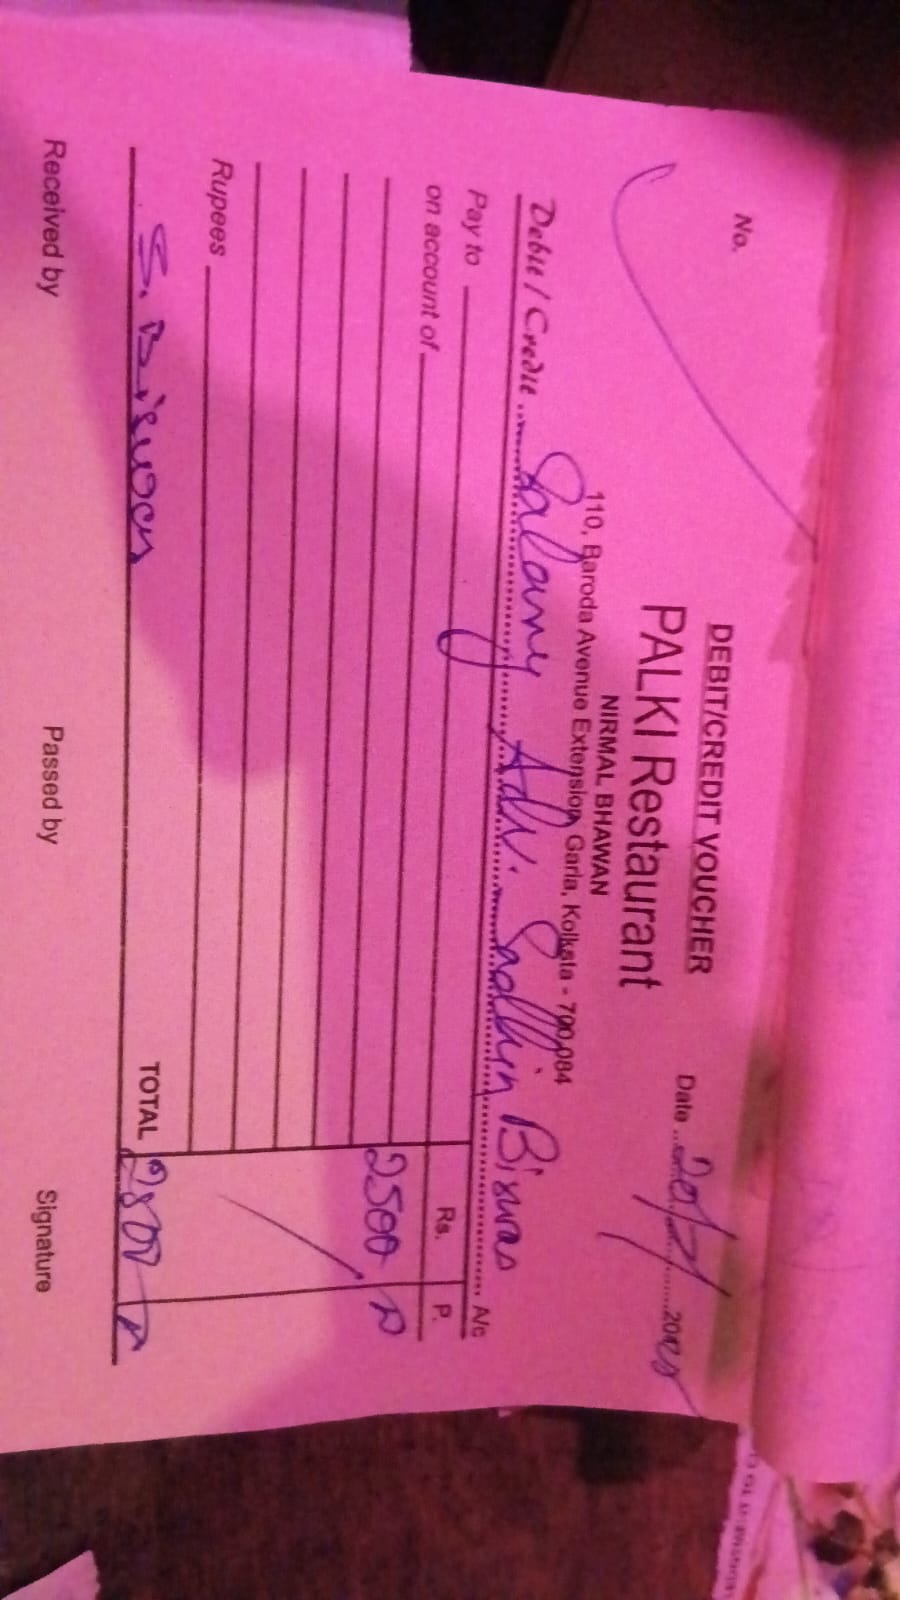 DEBIT/CREDIT VOUCHER
No.
PALKI Restaurant
Date
NIRMAL BHAWAN
110, Baroda Avenue Extension, Garia, Kolkata - 700 084
Debit / Credit Salany Adv. Sadhin Biswas A/c
Pay to
Rs. P.
on account of
2500
Rupees
TOTAL 2500
S. Biswas
Received by Passed by Signature